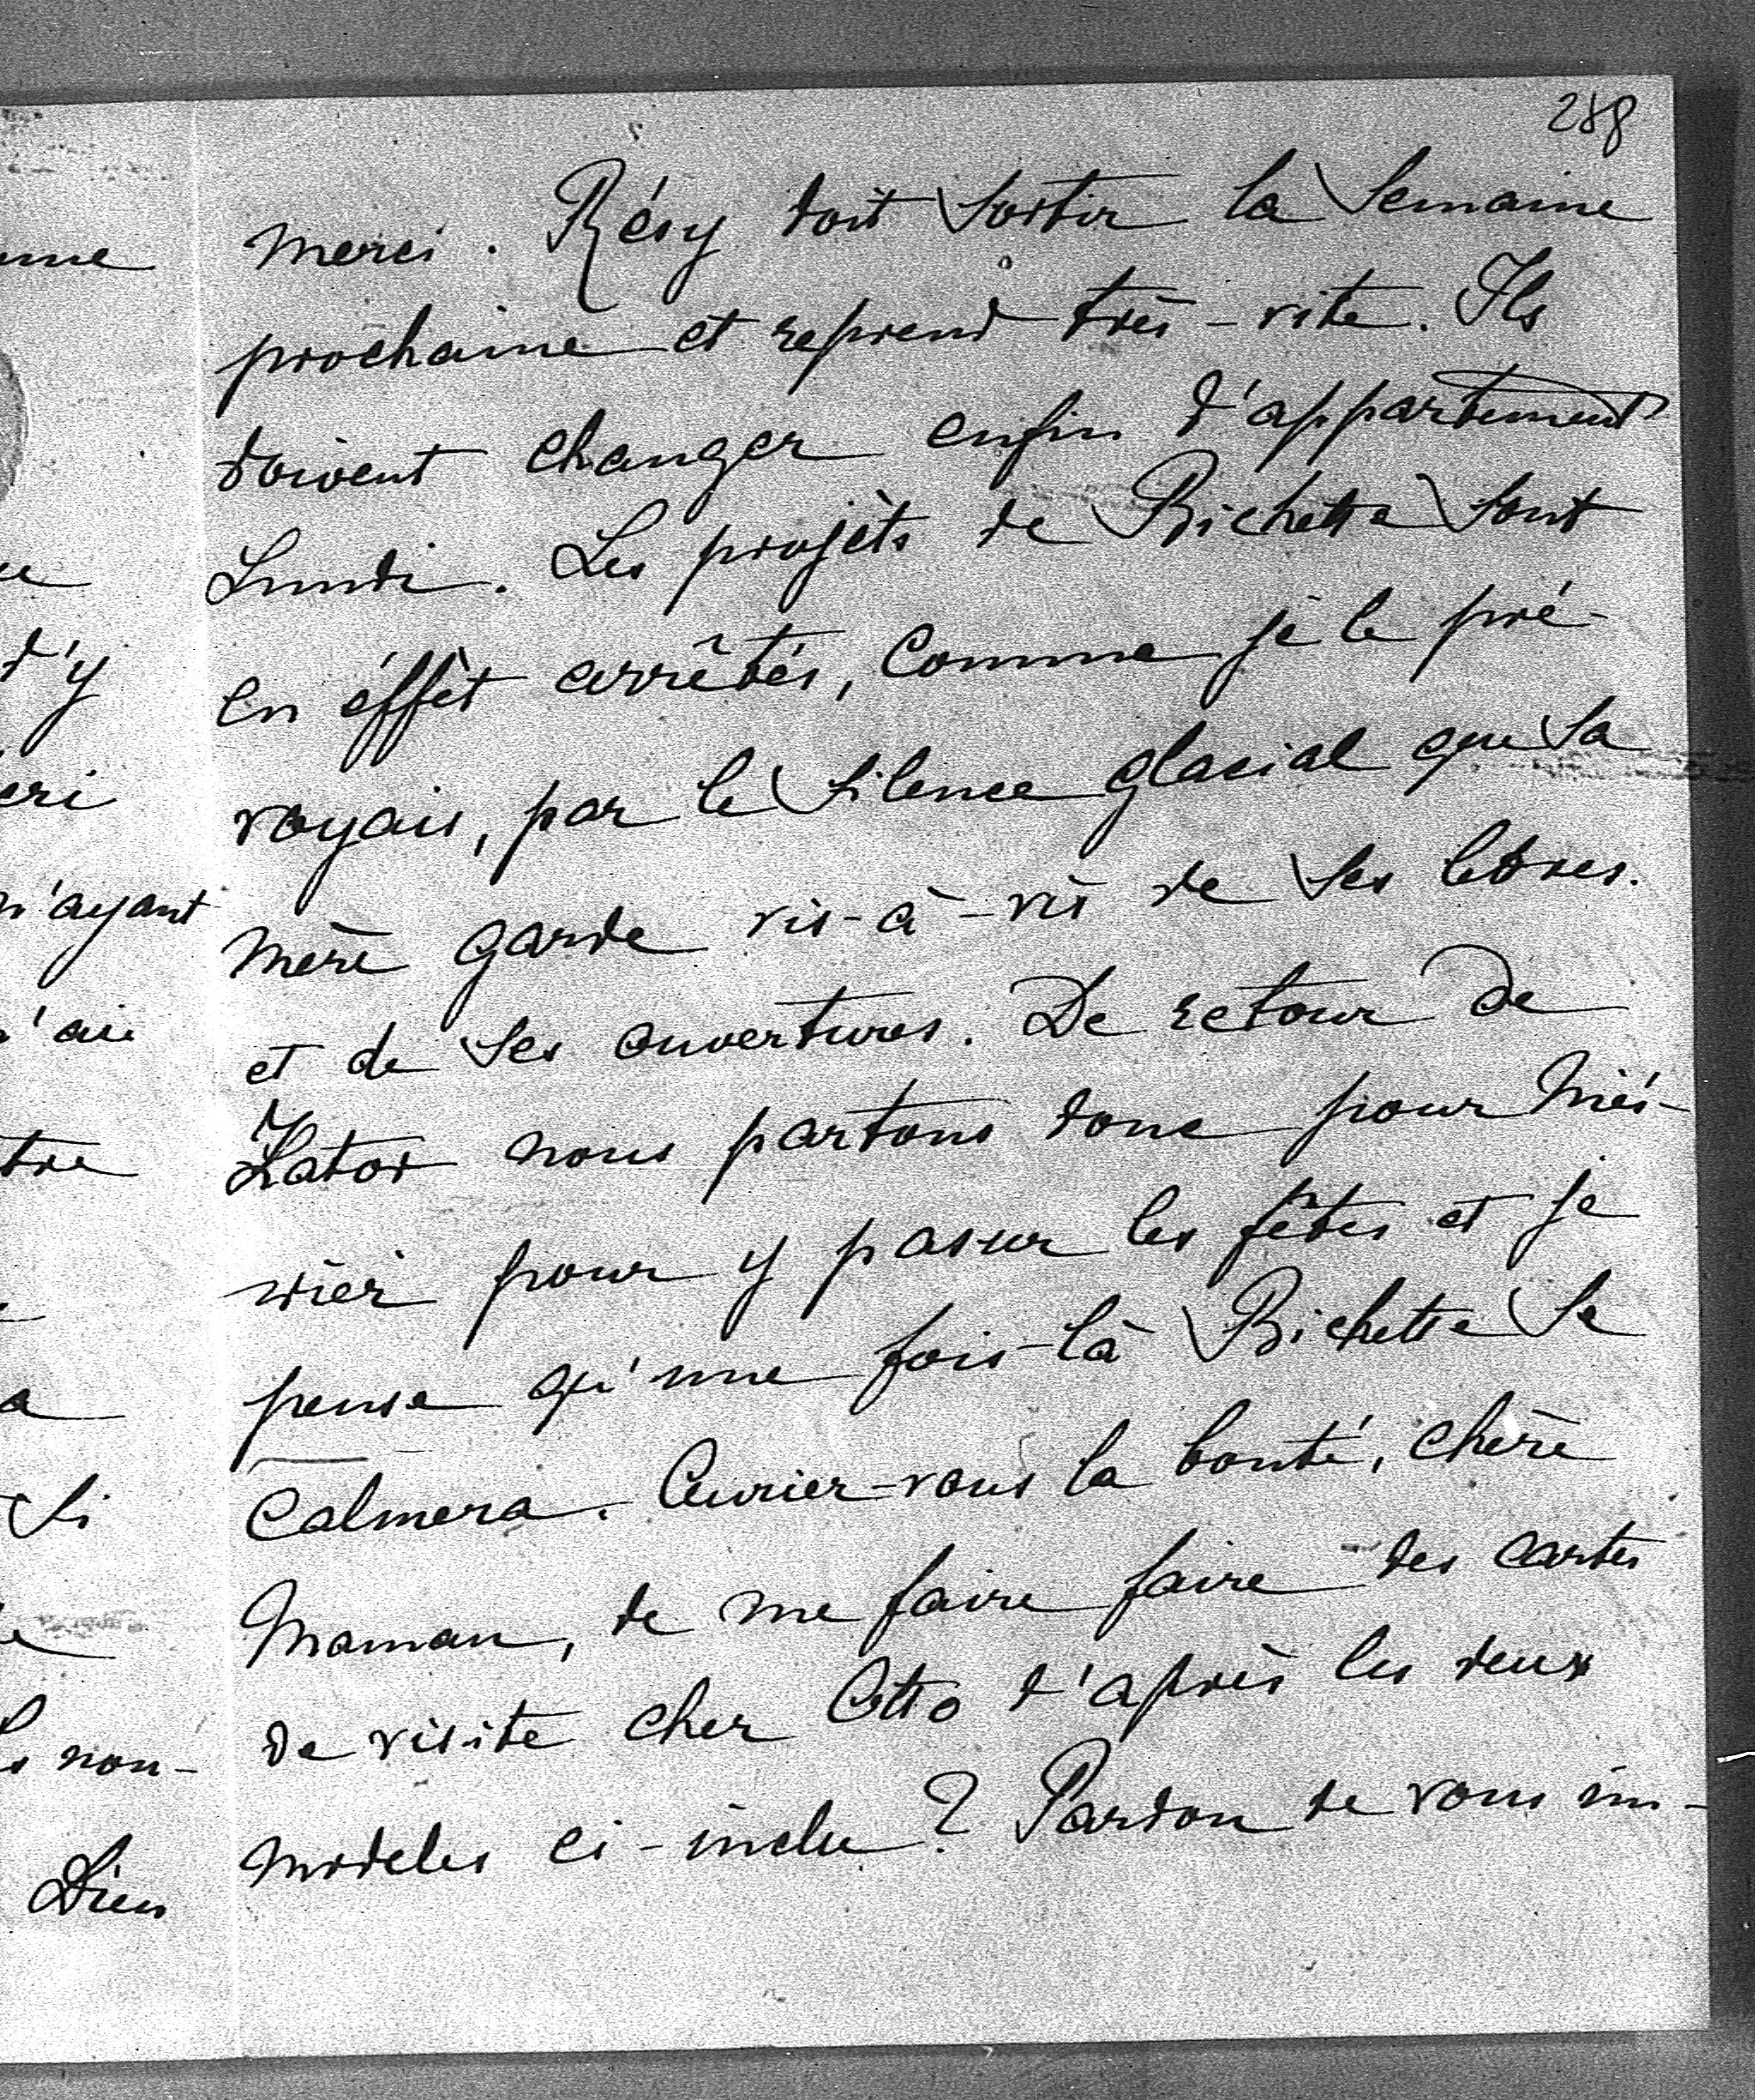 288
merci. Résy doit sortir la semaine
prochaine et reprend très-vite. Ils
doivent changer enfin d'appartement
Lundi. Les projèts de Bichette sont
en éffèt arrêtés, comme je le pré-
voyais, par le silence glacial que sa
mère garde vis-à-vis de ses lettres.
et de ses ouvertures. De retour de
Zator nous partons donc pour Niés-
wier pour y passer les fêtes et je
pense qu'une fois-là Bichette se
calmera. Auriez-vous la bonté, chère
Maman, de me faire faire des cartes
de visite chez Otto d'après les deux
modeles ci-inclu? Pardon de vous im-
d'y
n'ayant
Si
non-
Dieu